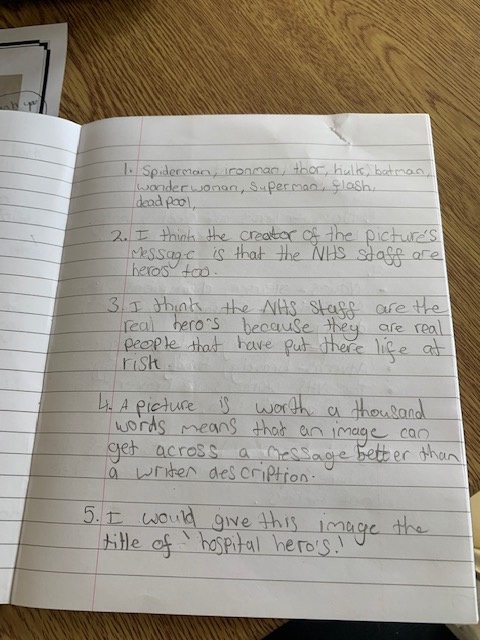 1. Spiderman, ironman, thor, hulk, batman,
wonderwonan, Superman, flash,
deadpool,
2. I think the creator of the picture's
message is that the NHS staff are
heros too.
3. I think the NHS staff are the
real hero's because they are real
people that have put there life at
risk.
4. A picture is worth a thousand
words means that an image can
get across a message better than
a writen description.
5. I would give this image the
title of 'hospital hero's!'